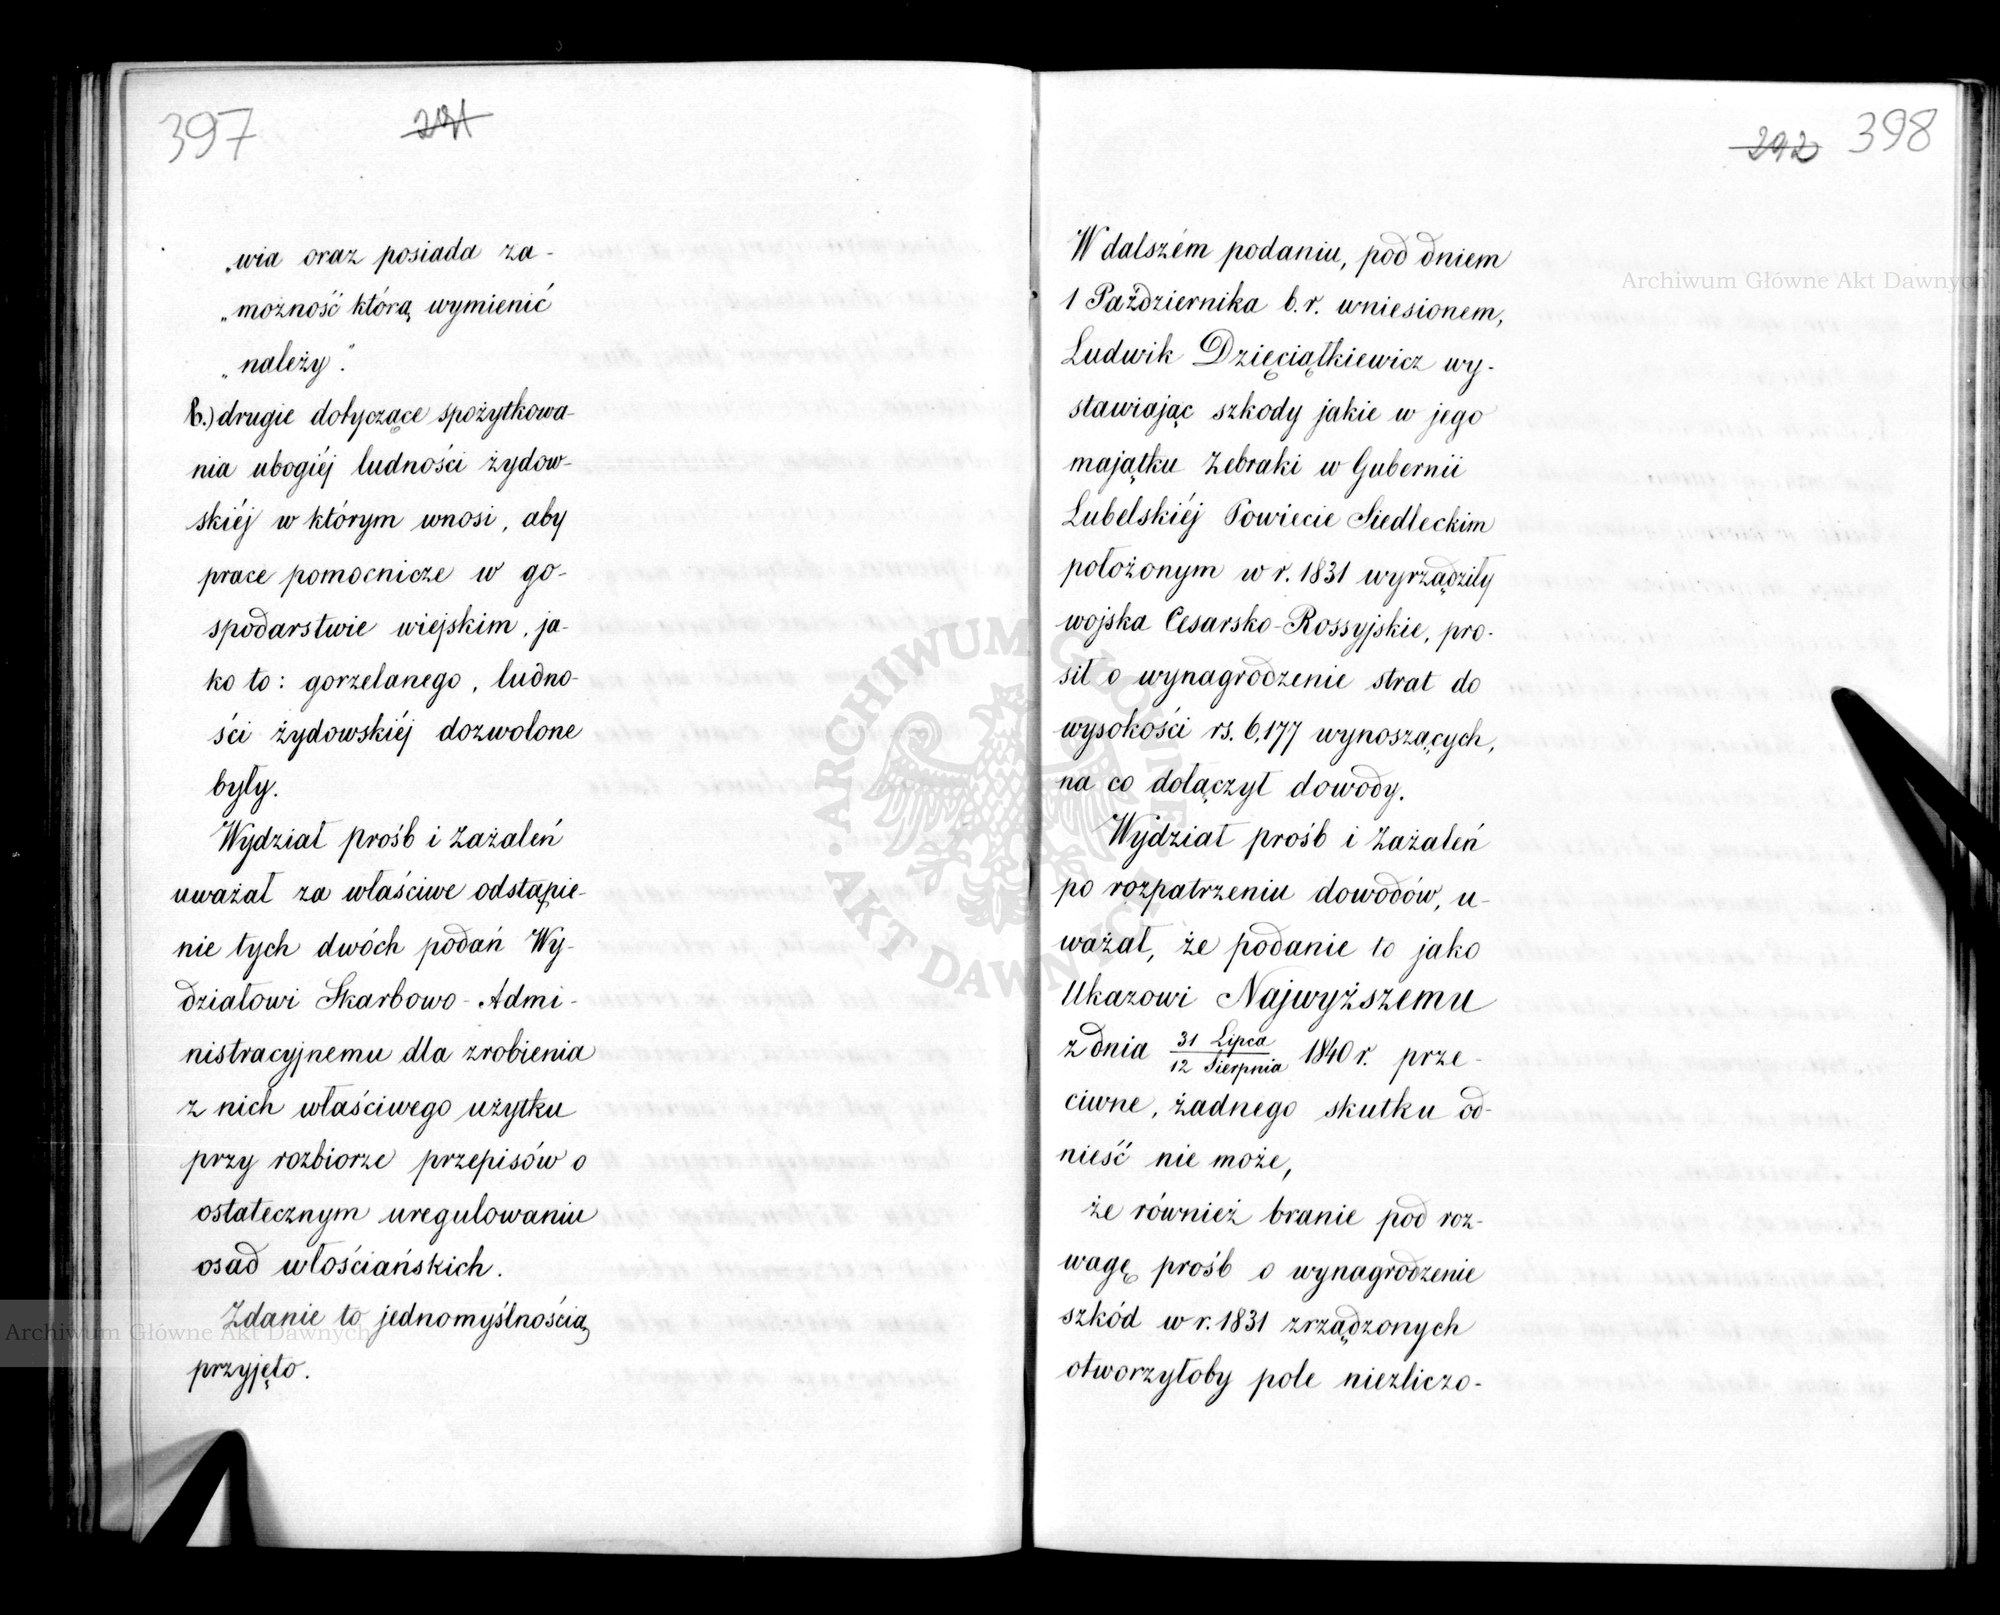 397
291
„wia oraz posiada za-
„możność którą wymienić
„należy".
b.) drugie dotyczące spożytkowa-
nia ubogiéj ludności żydow-
skiéj w którym wnosi, aby
prace pomocnicze w go-
spodarstwie wiejskim, ja-
ko to: gorzelanego, ludno-
ści żydowskiéj dozwolone
były.
Wydział prośb i Zażaleń
uważał za właściwe odstąpie-
nie tych dwóch podań Wy-
działowi Skarbowo-Admi-
nistracyjnemu dla zrobienia
z nich właściwego użytku
przy rozbiorze przepisów o
ostatecznym uregulowaniu
osad włościańskich.
Zdanie to jednomyślnością
przyjęto.
292 398
W dalszém podaniu, pod dniem
1 Października b.r. wniesionem,
Ludwik Dzięciątkiewicz wy-
stawiając szkody jakie w jego
majątku Żebraki w Gubernii
Lubelskiéj Powiecie Siedleckim
położonym w r. 1831 wyrządziły
wojska Cesarsko-Rossyjskie, pro-
sił o wynagrodzenie strat do
wysokości rs. 6,177 wynoszących,
na co dołączył dowody.
Wydział prośb i Zażaleń
po rozpatrzeniu dowodów, u-
ważał, że podanie to jako
Ukazowi Najwyższemu
z dnia 31 Lipca / 12 Sierpnia 1840 r. prze-
ciwne, żadnego skutku od-
nieść nie może,
że również branie pod roz-
wagę prośb o wynagrodzenie
szkód w r. 1831 zrządzonych
otworzyłoby pole niezliczo-
Archiwum Główne Akt Dawnych
Archiwum Główne Akt Dawnych
ARCHIWUM GŁÓWNE AKT DAWNYCH